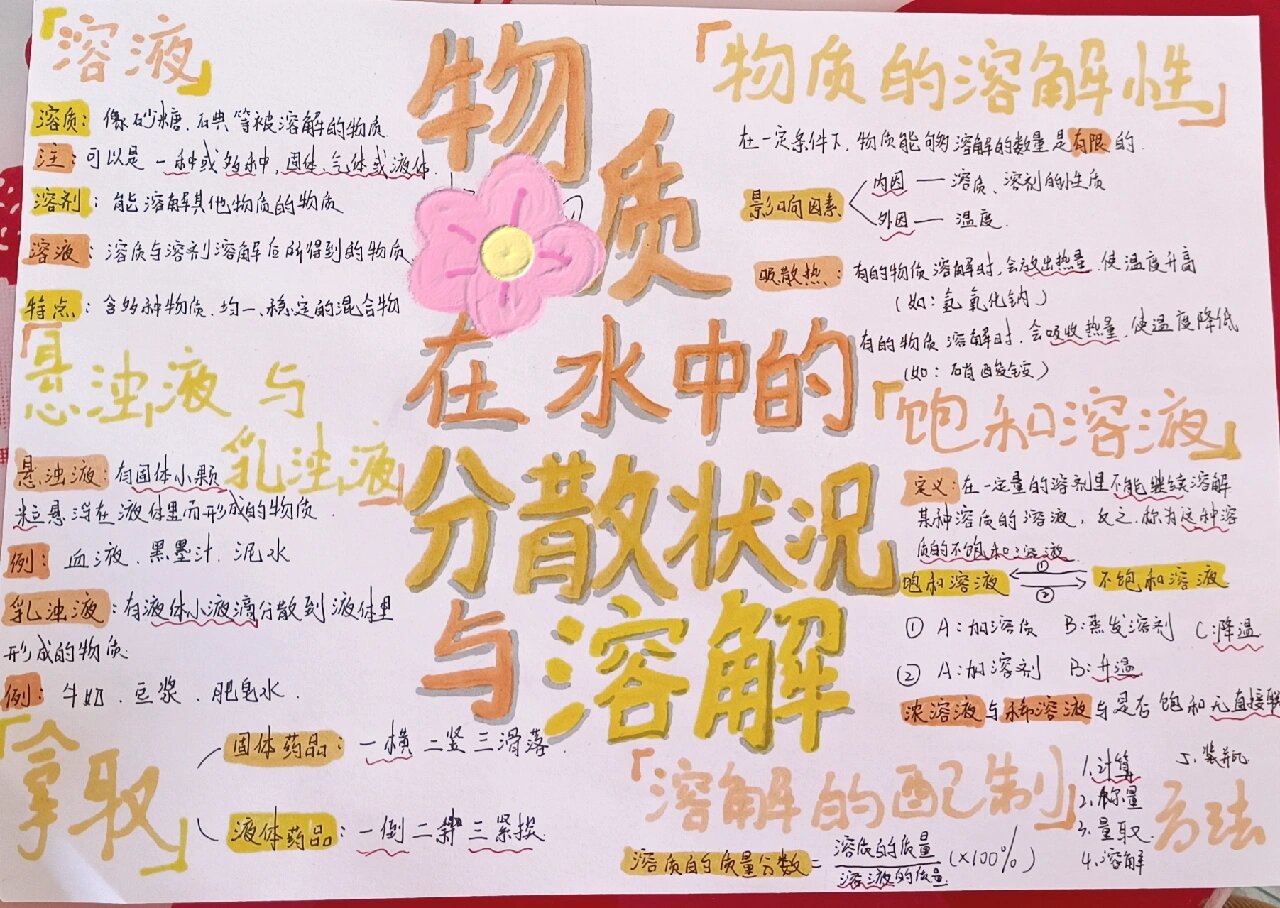 「溶液」
溶质：像砂糖、石典等被溶解的物质
注：可以是一种或多种，固体、气体或液体.
溶剂：能溶解其他物质的物质
溶液：溶质与溶剂溶解后所得到的物质
特点：含多种物质、均一、稳定的混合物
「悬浊液与
乳浊液」
悬浊液：有固体小颗
粒悬浮在液体里而形成的物质.
例：血液、黑墨汁、泥水
乳浊液：有液体小液滴分散到液体里
形成的物质
例：牛奶、豆浆、肥皂水.
「拿取」
固体药品：一横二竖三滑落.
液体药品：一倒二 三紧挨
物质
在水中的
分散状况
与溶解
「物质的溶解性」
在一定条件下，物质能够溶解的数量是有限的.
影响因素
内因—溶质、溶剂的性质
外因—温度.
吸散热：有的物质溶解时，会放出热量，使温度升高
（如：氢氧化钠）
有的物质溶解时，会吸收热量，使温度降低
（如：硝酸铵）
「饱和溶液」
定义：在一定量的溶剂里不能继续溶解
某种溶质的溶液，反之，称为这种溶
质的不饱和溶液
饱和溶液 ① ② 不饱和溶液
① A：加溶质 B：蒸发溶剂 C：降温
② A：加溶剂 B：升温
浓溶液与稀溶液与是否饱和无直接联
「溶解的配制」方法
1.计算
2.称量
3.量取
4.溶解
5.装瓶
溶质的质量分数=溶质的质量/溶液的质量(×100%)